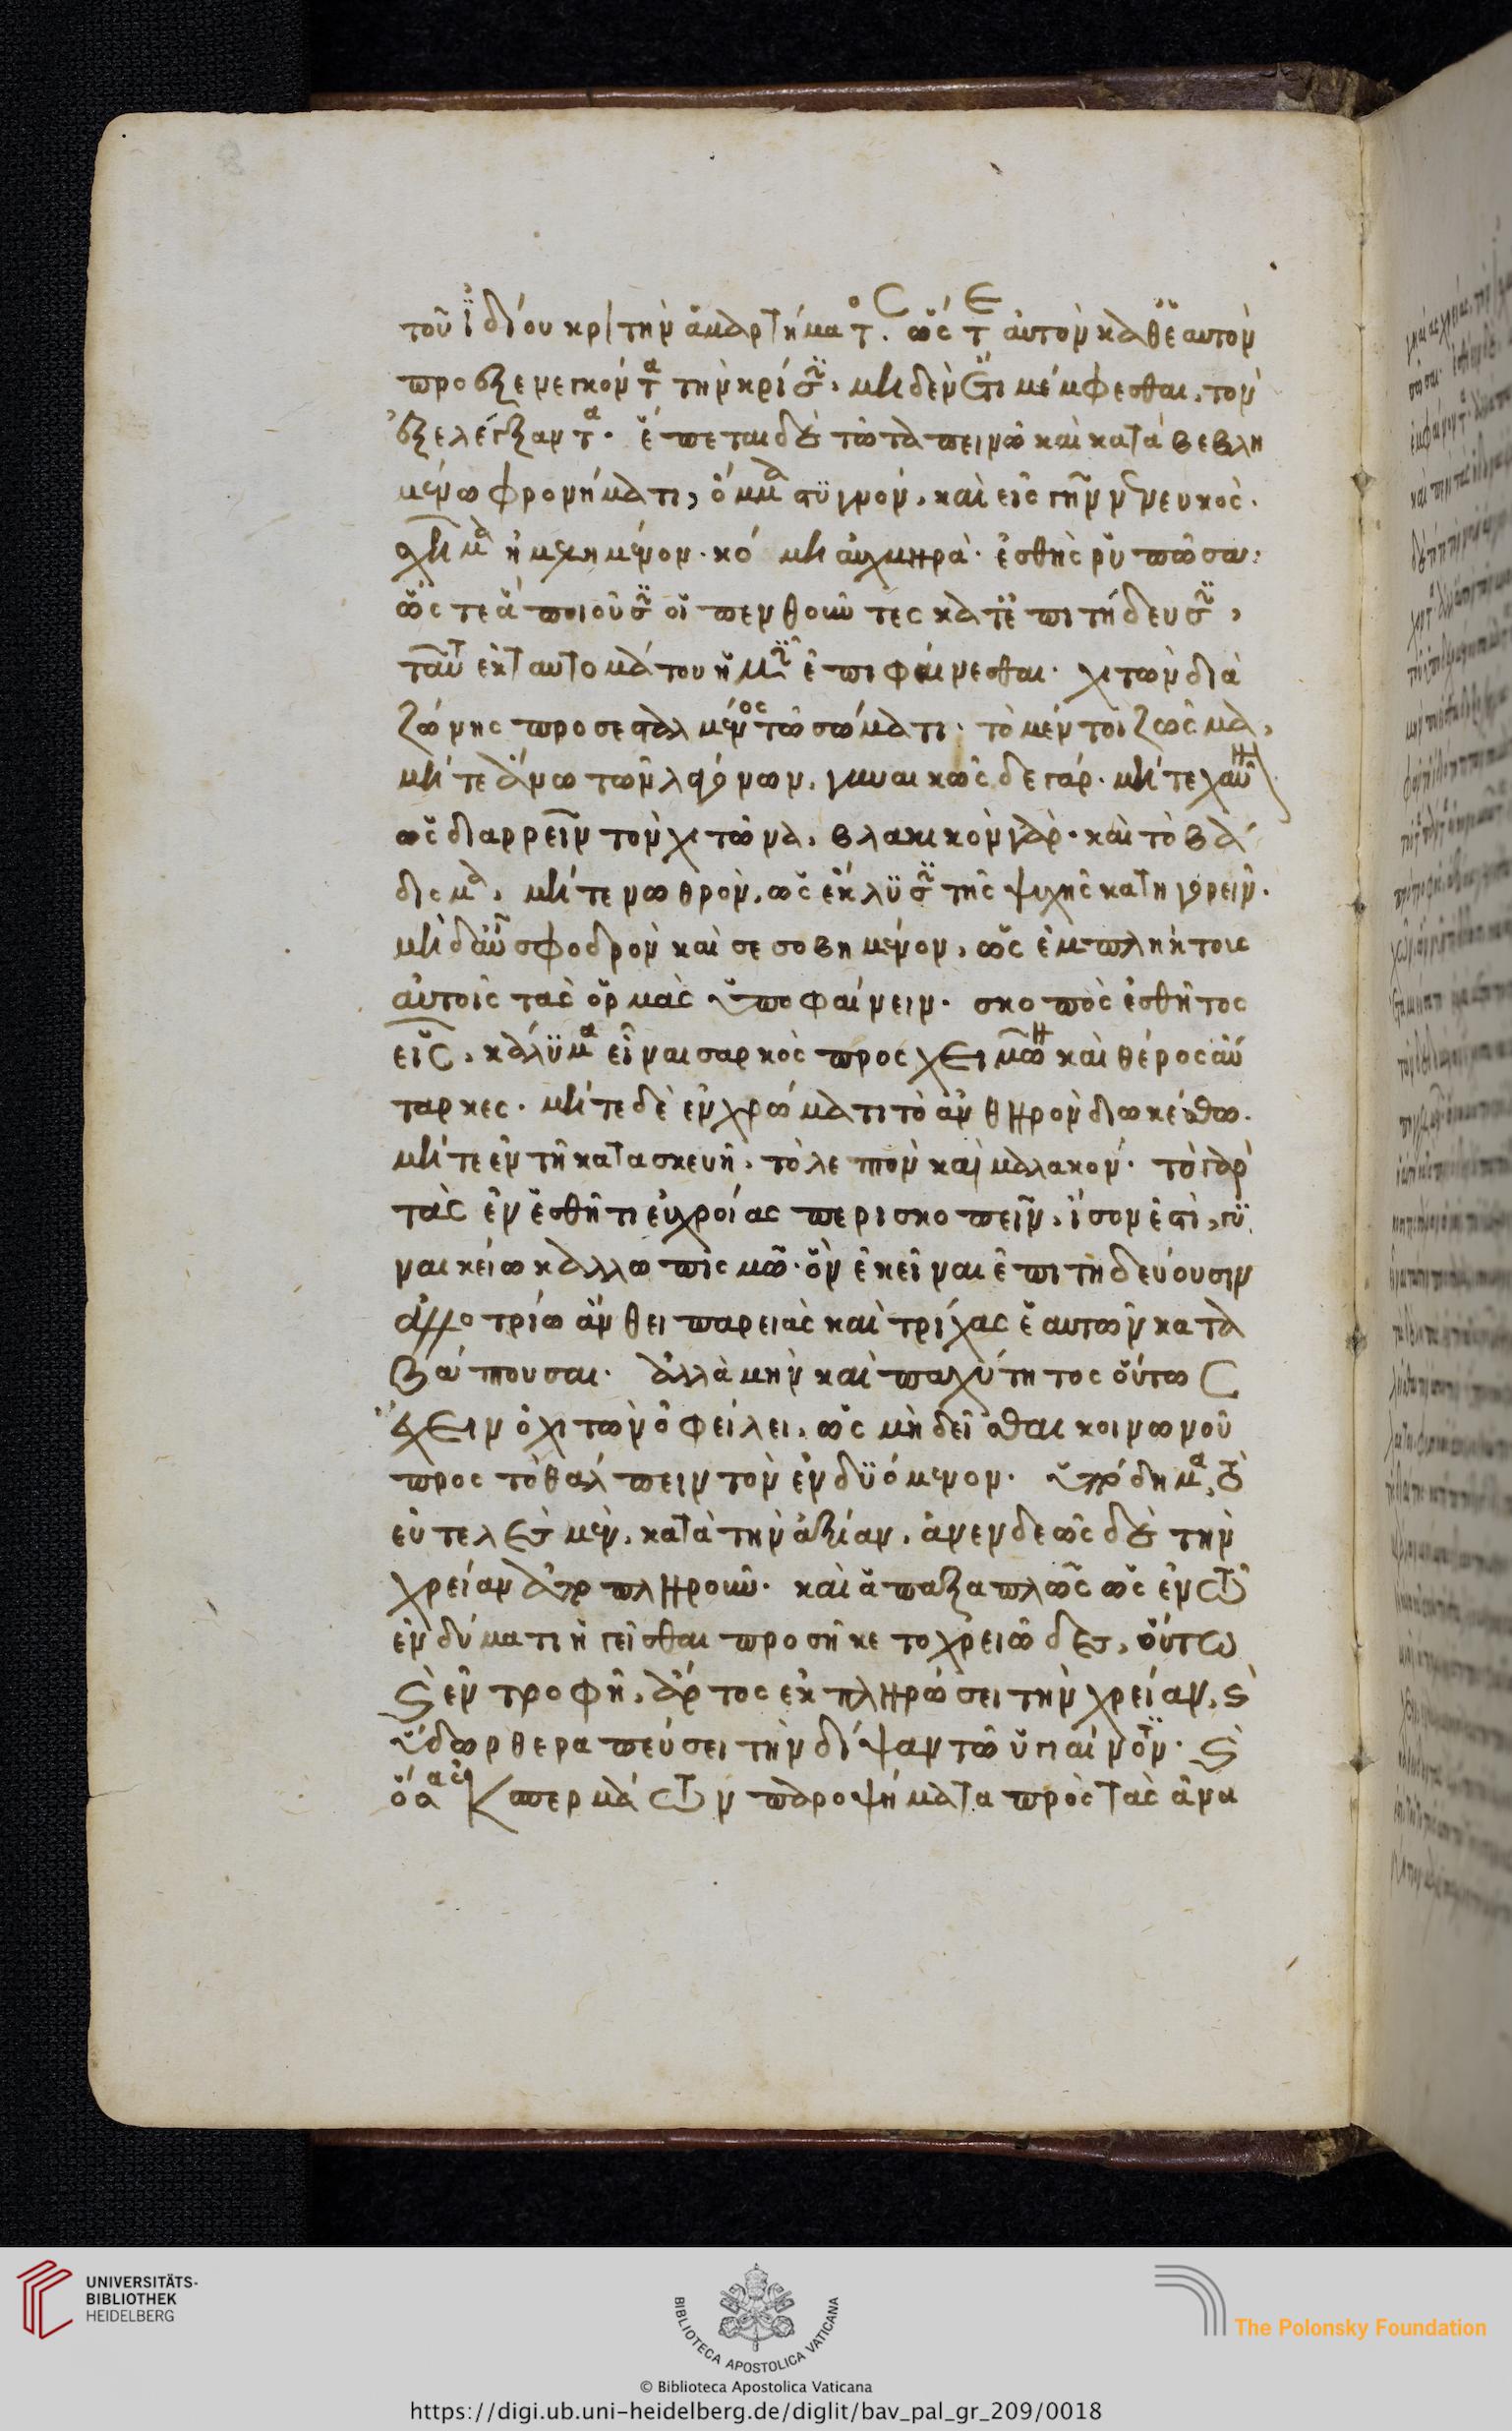 τοῦ ἰδίου κριτὴν ἁμαρτήματος. ὥστε αὐτὸν καθ' ἑαυτὸν
προεξενεγκόντα τὴν κρίσιν, μηδὲν ἔτι μέμφεσθαι, τὸν
ἐξελέγξαντα. ἕπεται δὲ τῶ ταπεινῶ καὶ καταβεβλη
μένω φρονήματι, ὄμμα στυγνόν, καὶ εἰς γῆν νενευκός.
σχῆμα ἠμελημένον. κόμη αὐχμηρά. ἐσθὴς ῥυπῶσα.
ὥστε ἃ ποιοῦσιν οἱ πενθοῦντες κατ' ἐπιτήδευσιν,
ταῦτ ἐκ ταυτομάτου ἡμῖν ἐπιφαίνεσθαι. χιτὼν διὰ
ζώνης προσεσταλμένος τῶ σώματι. τὸ μέντοι ζῶσμα,
μήτε ἄνω τῶν λαγόνων, γυναικῶδες γάρ. μήτε χαῦνον
ὡς διαρρεῖν τὸν χιτῶνα, βλακικὸν γάρ. καὶ τὸ βά
δισμα, μήτε νωθρὸν, ὡς ἔκλυσιν τῆς ψυχῆς κατηγορεῖν.
μὴδ' αὖ σφοδρὸν καὶ σεσοβημένον, ὡς ἐμπλήκτους
αὐτοῖς τὰς ὁρμὰς ὑποφαίνειν. σκοπὸς ἐσθῆτος
εἷς, κάλυμμα εἶναι σαρκὸς πρὸς χειμῶνα καὶ θέρος αὔ
ταρκες. μήτε δὲ ἐν χρώματι τὸ ἀνθηρὸν διωκέσθω.
μήτε ἐν τῆ κατασκευῆ, τὸ λεπτὸν καὶ μαλακόν. τὸ γὰρ
τὰς ἐν ἐσθῆτι εὐχροίας περισκοπεῖν, ἴσον ἐστὶ, γυ
ναικείω καλλωπισμῶ. ὃν ἐκεῖναι ἐπιτηδεύουσιν
ἀλλοτρίω ἄνθει παρειὰς καὶ τρίχας ἑαυτῶν κατα
βάπτουσαι. ἀλλὰ μὴν καὶ παχύτητος οὕτως
ἔχειν ὁ χιτὼν ὀφείλει, ὡς μὴ δεῖσθαι κοινωνοῦ
πρὸς τὸ θάλπειν τὸν ἐνδυόμενον. ὑπόδημα, τὸ
εὐτελὲς μὲν, κατὰ τὴν ἀξίαν, ἀνενδεῶς δὲ τὴν
χρείαν ἀποπληροῦν. καὶ ἅπαξαπλῶς ὡς ἐν τῶ
ἐνδύματι ἡγεῖσθαι προσῆκε τὸ χρειῶδες, οὕτω
καὶ ἐν τροφῆ, ἄρτος ἐκπληρώσει τὴν χρείαν, καὶ
ὕδωρ θεραπεύσει τὴν δίψαν τῶ ὑγιαίνοντι. καὶ
ὅσα ἐκ σπερμάτων παροψήματα πρὸς τὰς ἀνα
UNIVERSITÄTS-
BIBLIOTHEK
HEIDELBERG
BIBLIOTECA APOSTOLICA VATICANA
The Polonsky Foundation
© Biblioteca Apostolica Vaticana
https://digi.ub.uni-heidelberg.de/diglit/bav_pal_gr_209/0018